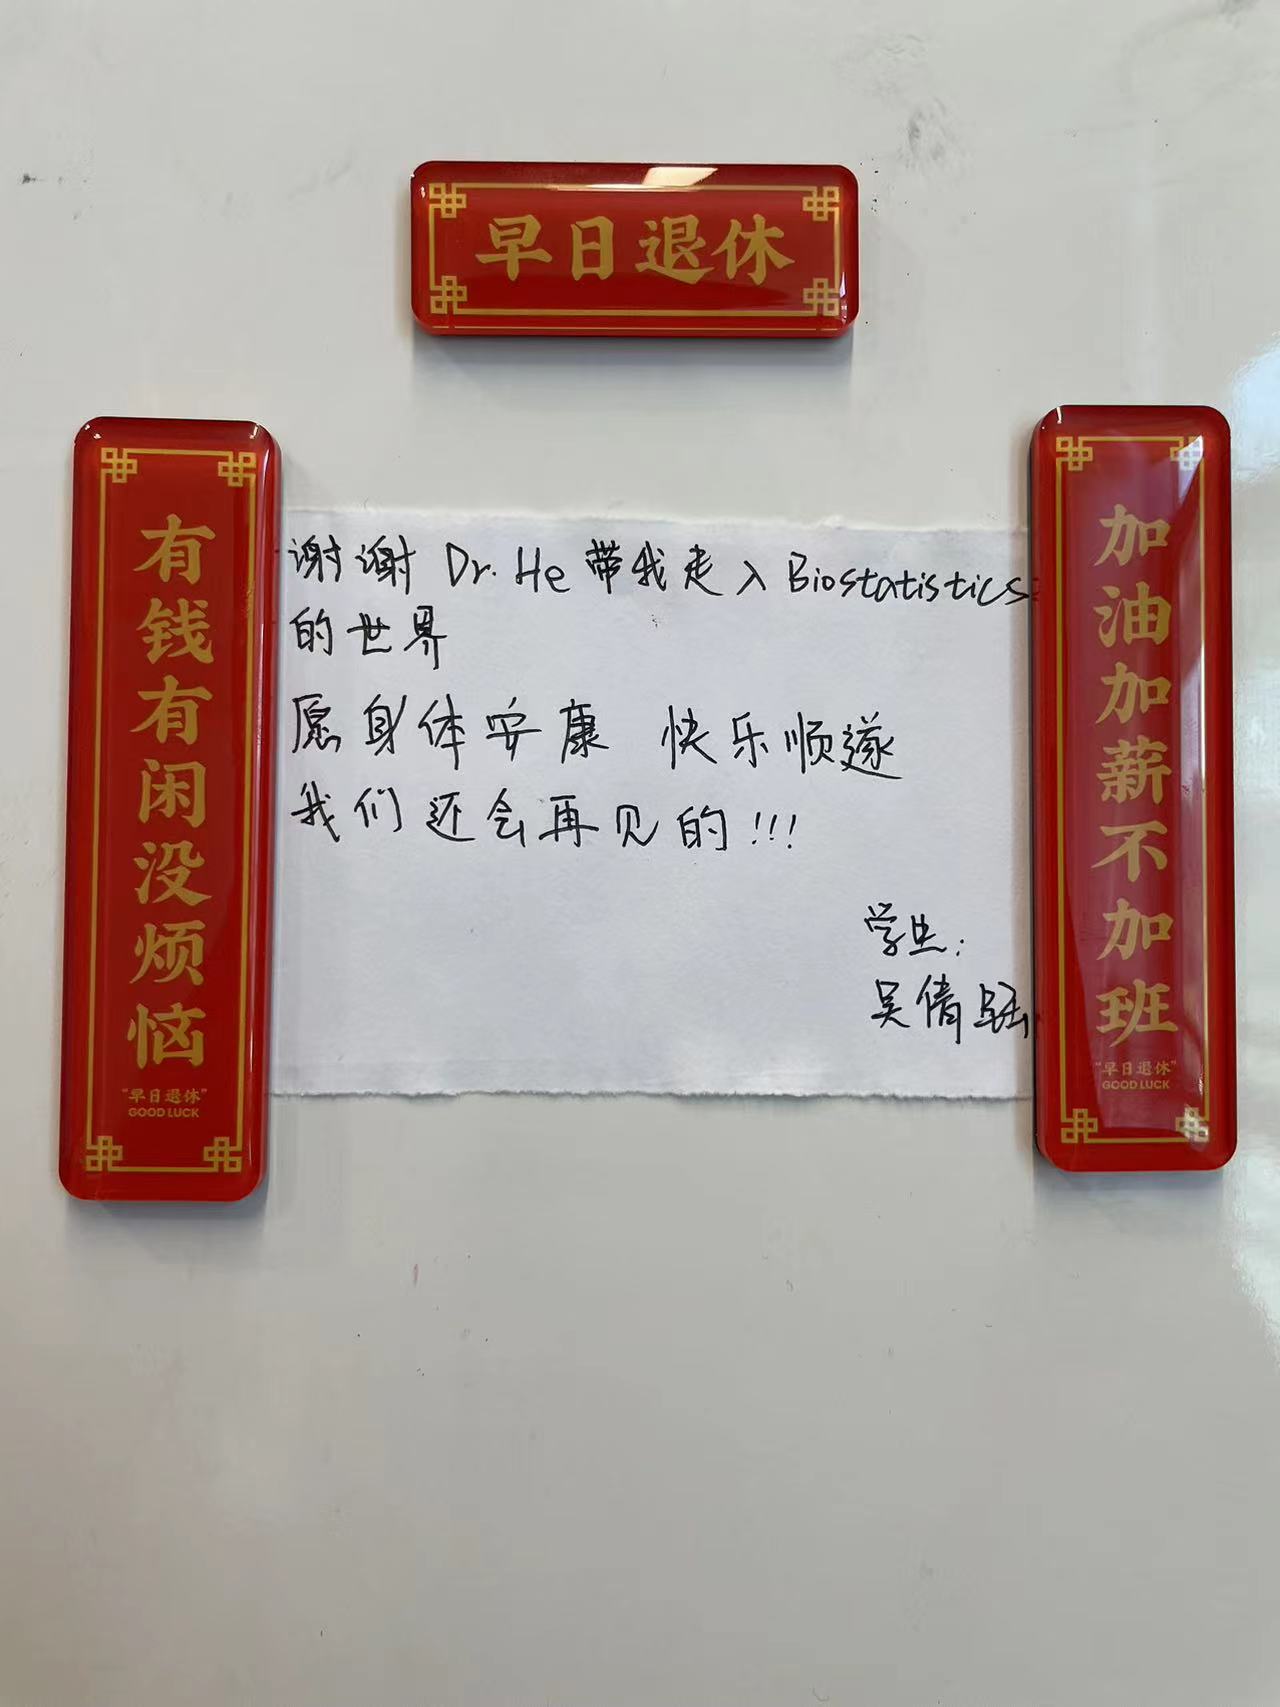 早日退休
有钱有闲没烦恼
"早日退休"
GOOD LUCK
谢谢 Dr. He 带我走入 Biostatistics
的世界
愿身体安康 快乐顺遂
我们还会再见的!!!
学生:
吴倩
加油加薪不加班
"早日退休"
GOOD LUCK